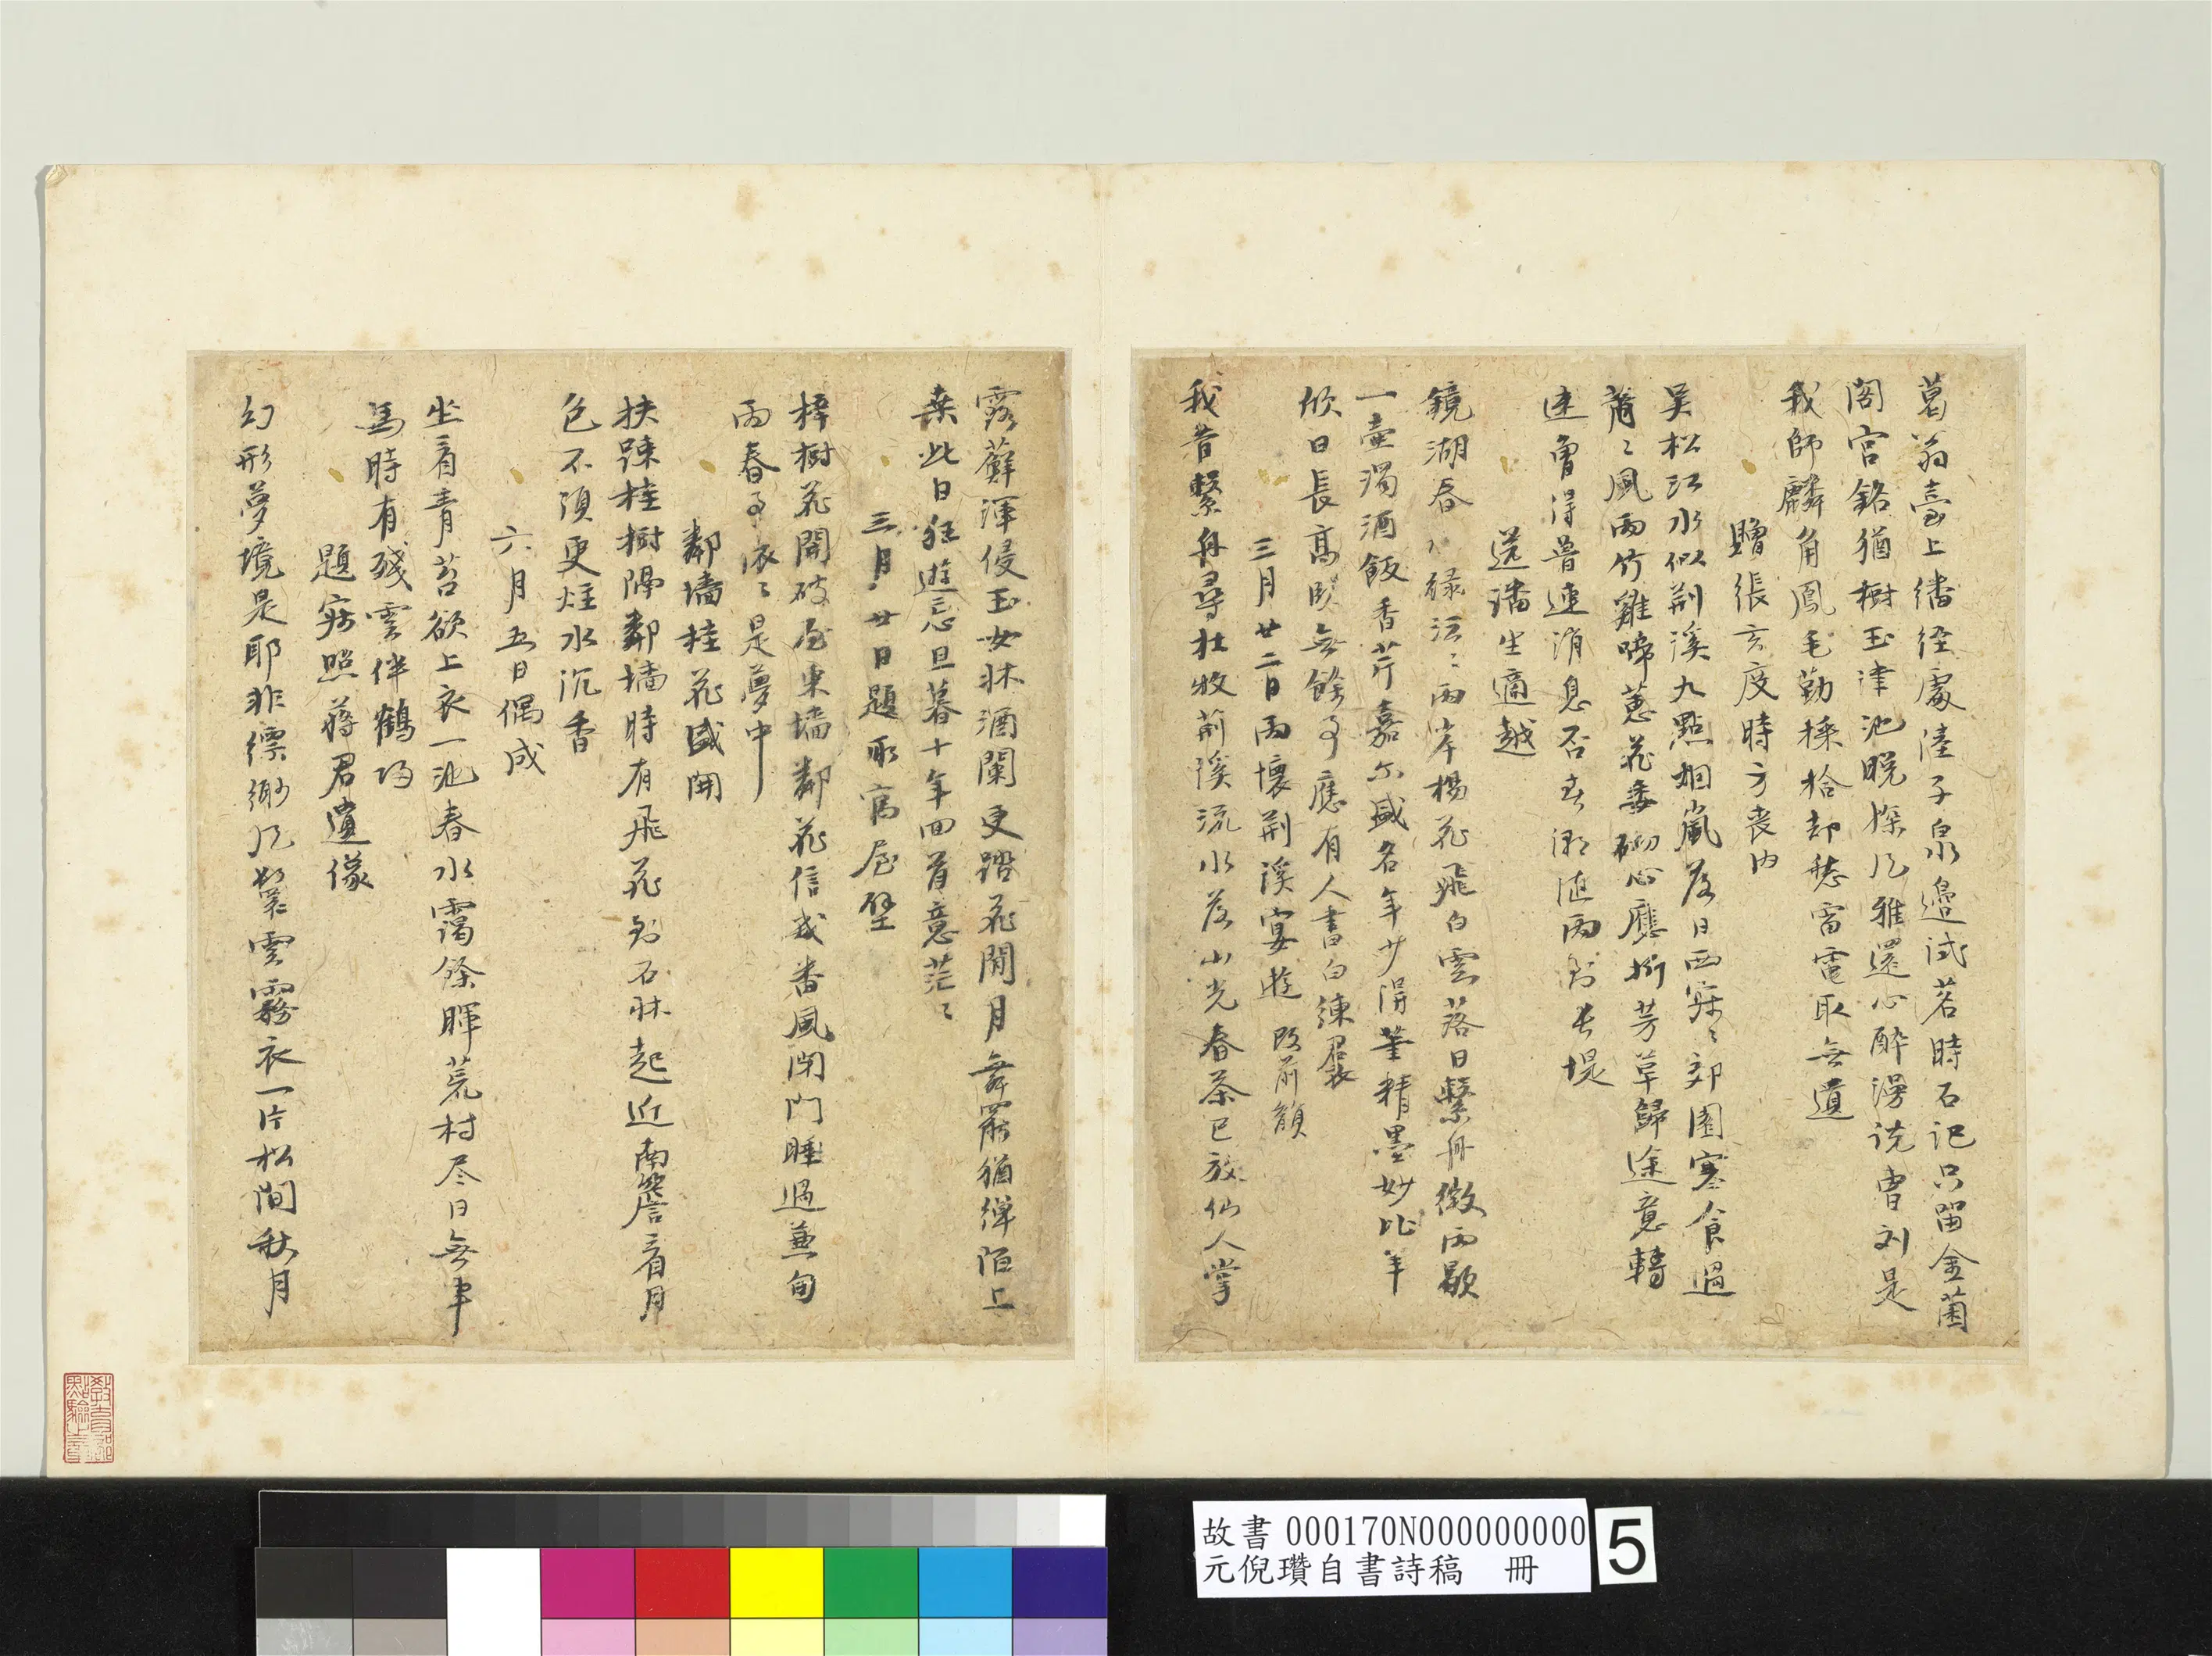 葛翁臺上繙經處陸子泉邊試茗時石記只留金菌
閣宮銘猶樹玉津池晚深几雅還心醉漫說曹刘是
我師麟角鳳毛勤採拾却愁雷電取無遺
贈張玄度時方喪内
吳松江水似荆溪九點烟嵐落日西寂〻郊園寒食過
蕭〻風雨竹雞啼蕙花委砌心應折芳草歸途意轉
迷魯得普連消息否
送潘生適越
鏡湖春水綠沄〻兩岸楊花飛白雲落日繫舟微雨歇
一壺濁酒飯香芹嘉尔盛名年少得筆精墨妙比羊
欣日長高臥無餘事應有人書白練裙
三月廿二日雨懷荆溪宴遊 改前韻
我昔繫舟尋杜牧荊溪流水落山光春茶已放仙人掌
露蘚渾侵玉女牀酒闌更踏花間月舞罷猶彈陌上
桑此日狂遊忘旦暮十年回首意茫〻
三月廿日題所寓屋壁
梓樹花開破屋東墻鄰花信幾番風閉門睡過兼旬
雨春事依〻是夢中
鄰墻桂花盛開
扶踈桂樹隔鄰墻時有飛花到石牀起近南簷看月
色不須更炷水沉香
六月五日偶成
坐看青苔欲上衣一池春水靄餘暉荒村尽日無車
馬時有殘雲伴鶴歸
題寂照蔣君遺像
幻形夢境是耶非縹緲風鬟雲霧衣一片松間秋月
故書 000170N000000000
元倪瓚自書詩稿 冊
5